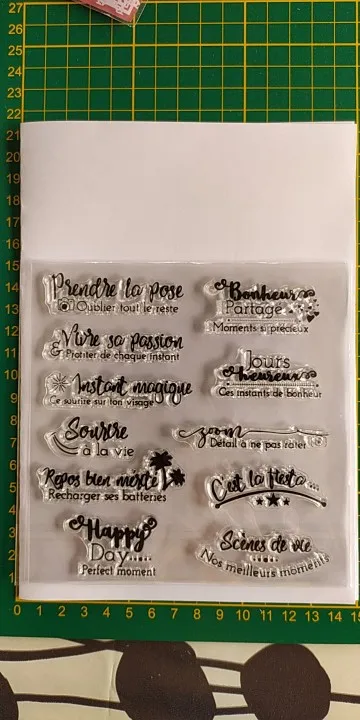 Prendre la pose
Oublier tout le reste
Vivre sa passion
& Profiter de chaque instant
Instant magique
Ce sourire sur ton visage
Sourire
à la vie
Repos bien mérité
Recharger ses batteries
Happy
Day.....
Perfect moment
Bonheur
Partagé
Moments si précieux
Jours
heureux
Ces instants de bonheur
zoom
Détail à ne pas rater
C'est la fiesta...
Scènes de vie
Nos meilleurs moments
27
26
25
24
23
22
21
20
19
18
17
16
15
14
13
12
11
10
9
8
7
6
5
4
3
2
1
0 1 2 3 4 5 6 7 8 9 10 11 12 13 14 15